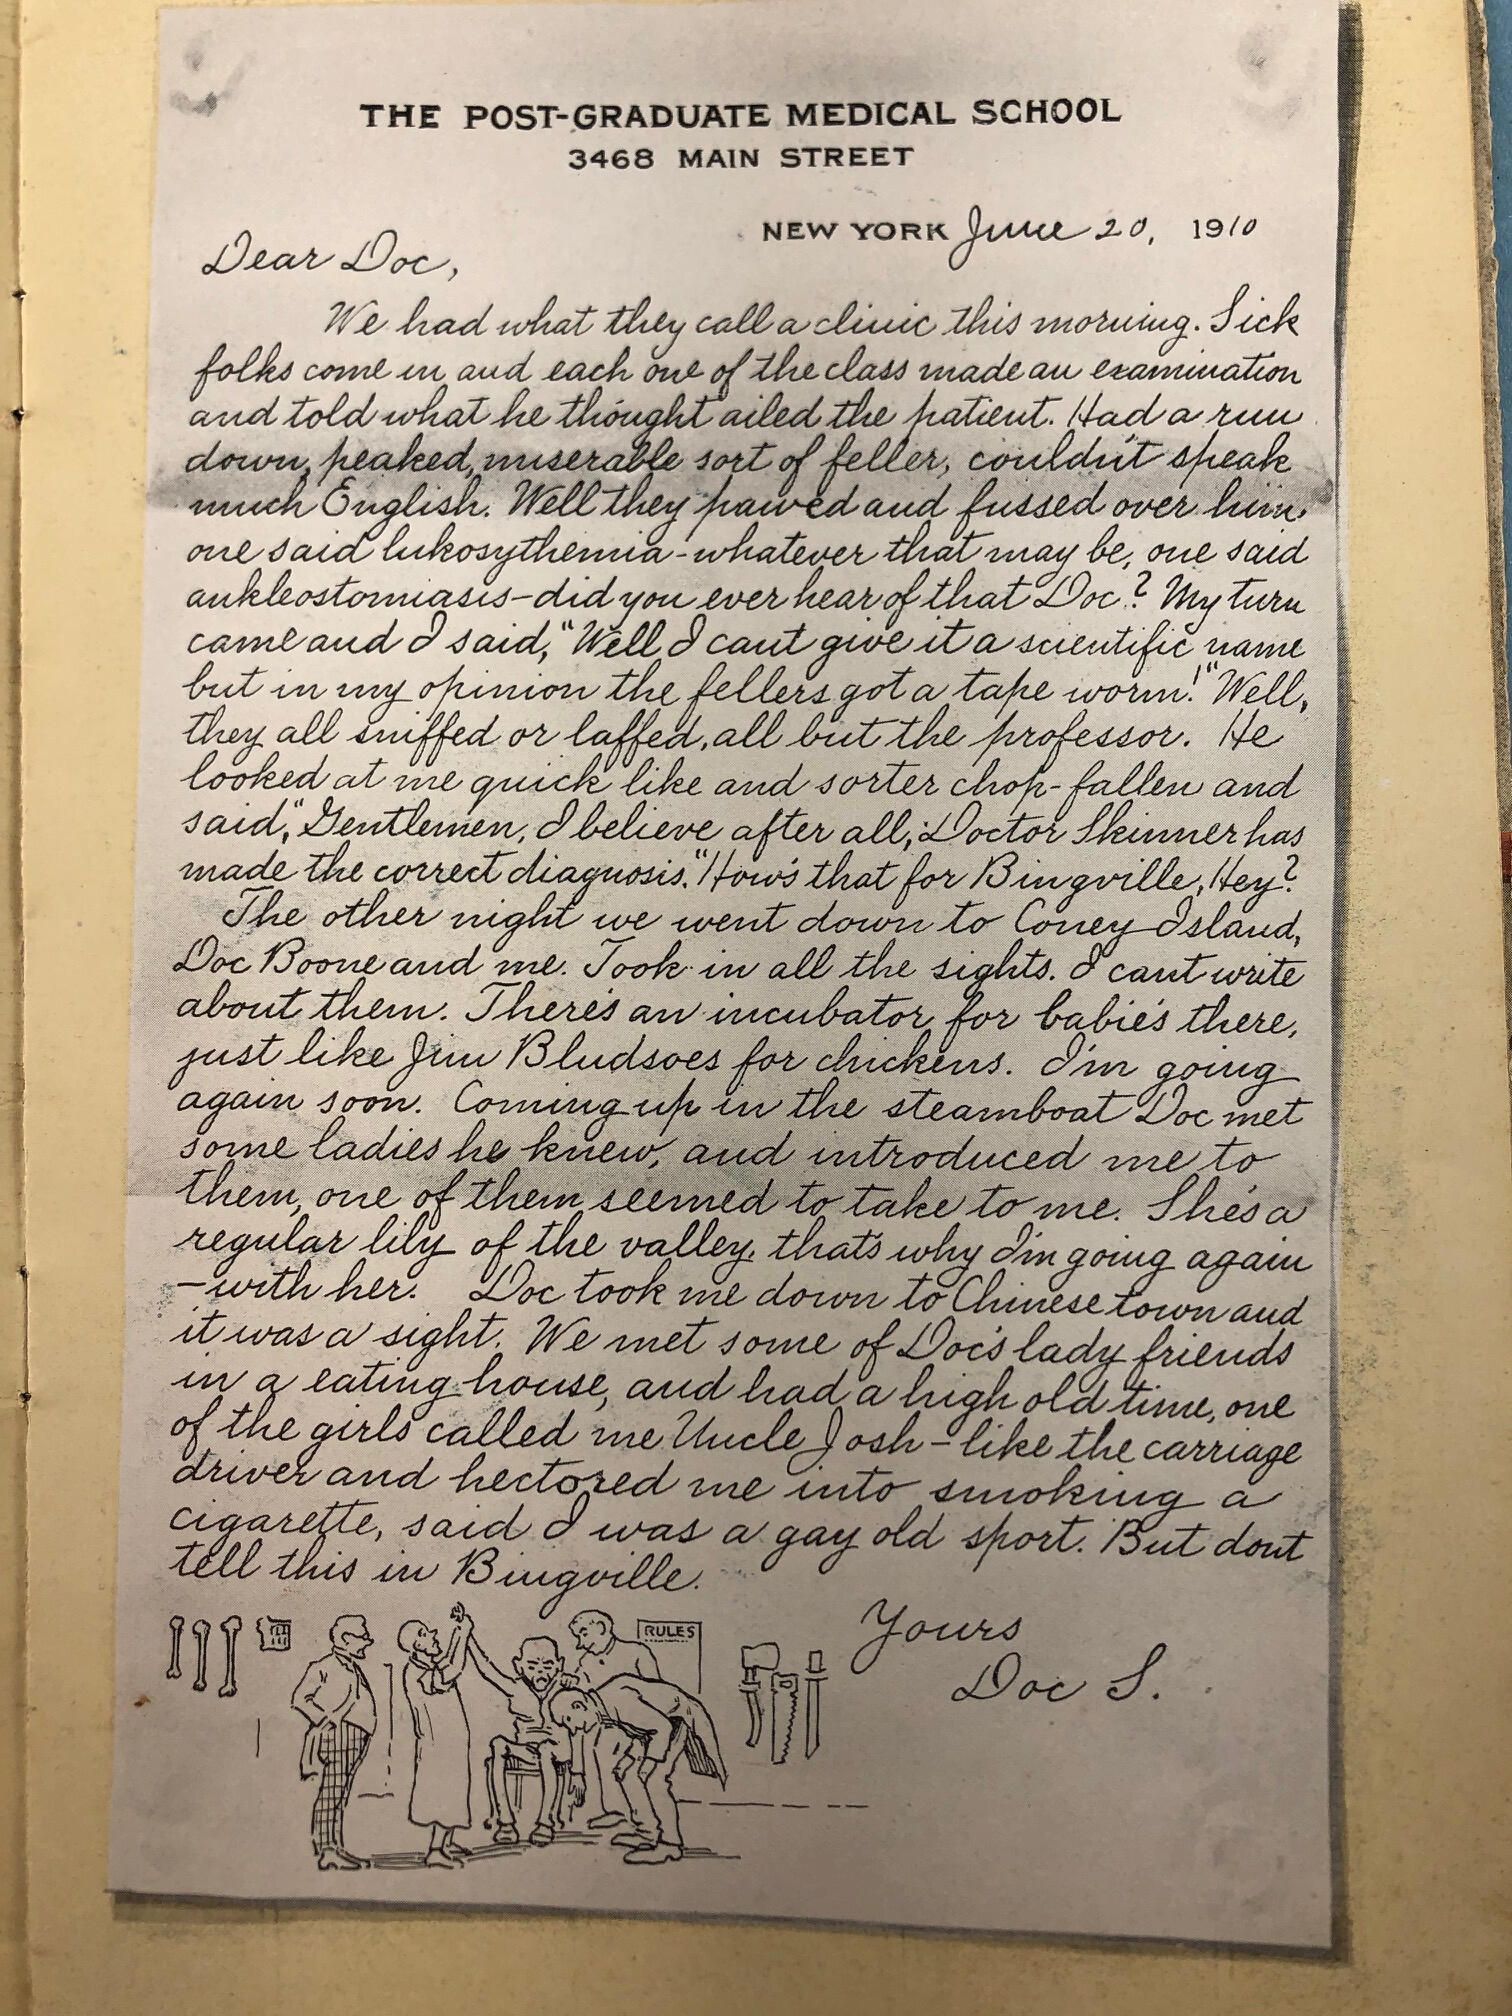 THE POST-GRADUATE MEDICAL SCHOOL
3468 MAIN STREET
NEW YORK June 20, 1910
Dear Doc,
We had what they call a clinic this morning. Sick
folks come in and each one of the class made an examination
and told what he thought ailed the patient. Had a run
down, peaked, miserable sort of feller, couldn't speak
much English. Well they pawed and fussed over him,
one said lukosythemia - whatever that may be, one said
ankleostomiasis - did you ever hear of that Doc? My turn
came and I said, "Well I cant give it a scientific name
but in my opinion the fellers got a tape worm!" Well,
they all sniffed or laffed, all but the professor. He
looked at me quick like and sorter chop-fallen and
said, "Gentlemen, I believe after all, Doctor Skinner has
made the correct diagnosis." How's that for Bingville, Hey?
The other night we went down to Coney Island,
Doc Boone and me. Took in all the sights. I cant write
about them. There's an incubator for babie's there,
just like Jim Bludsoes for chickens. I'm going
again soon. Coming up in the steamboat Doc met
some ladies he knew, and introduced me to
them, one of them seemed to take to me. She's a
regular lily of the valley, that's why I'm going again
- with her. Doc took me down to Chinese town and
it was a sight. We met some of Doc's lady friends
in a eating house, and had a high old time, one
of the girls called me Uncle Josh - like the carriage
driver and hectored me into smoking a
cigarette, said I was a gay old sport. But dont
tell this in Bingville.
Yours
Doc S.
RULES